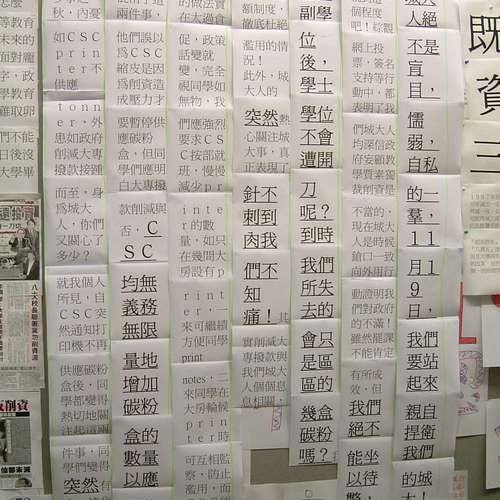 等教育
未來的
面對龐
字，政
學教育
們不能
日後沒
大學畢
秋，內憂
如CSC
prin
ter不
供應
tonn
er，外
患如政府
削減大專
撥款接到
而至，身
為城大
人，你們
又關心了
多少？
就我個人
所見，自
CSC突
然通知打
印機不再
供應碳粉
盒後，同
學都變得
熱切地關
注起這兩
件事，同
學們變得
突然有
兩件事，
他們誤以
為CSC
縮皮是因
為削資造
成壓力才
要暫停供
應碳粉
盒，但同
學們應明
白大專撥
款削減與
否，C
SC
均無
義務
無限
量地
增加
碳粉
盒的
數量
以應
在太過貪
促，政策
話變就
變，完全
視同學如
無物，我
們應強烈
要求CS
C按部就
班，慢慢
減少pr
inte
r的數
量，如只
在幾間大
房設有p
rint
er，一
來可繼續
方便同學
print
notes，二
來同學在
大房輪候
prin
ter時
可互相監
察，防止
濫用，正
額制度，
徹底杜絕
濫用的情
況！
此外，城
大人的
突然熱
心關注城
大事，真
正表現了
針不
刺到
肉我
們不
知
痛！其
實削減大
專撥款與
我們城大
人個個息
息相關，
副學
位
後，
學士
學位
不會
遭開
刀
呢？
到時
我們
所失
去的
會只
是區
區的
幾盒
碳粉
嗎？
個程度
吧！綜觀
網上投
票，簽名
支持等行
動中，都
表明了我
們城大人
均深信政
府妄顧教
學質素獨
裁削資是
不當的，
現在城大
人是時候
鎗口一致
向外用行
動證明我
們對政府
的不滿！
雖然罷課
不能肯定
有所成
效，但
我們
絕不
能坐
以待
斃，
人絕
不是
盲
目，
懦
弱，
自私
的一
羣，
11
月1
9
日，
我們
要站
起來
親自
捍衛
我們
的城
大！
既
資
三
八大校長聯署震勿削資